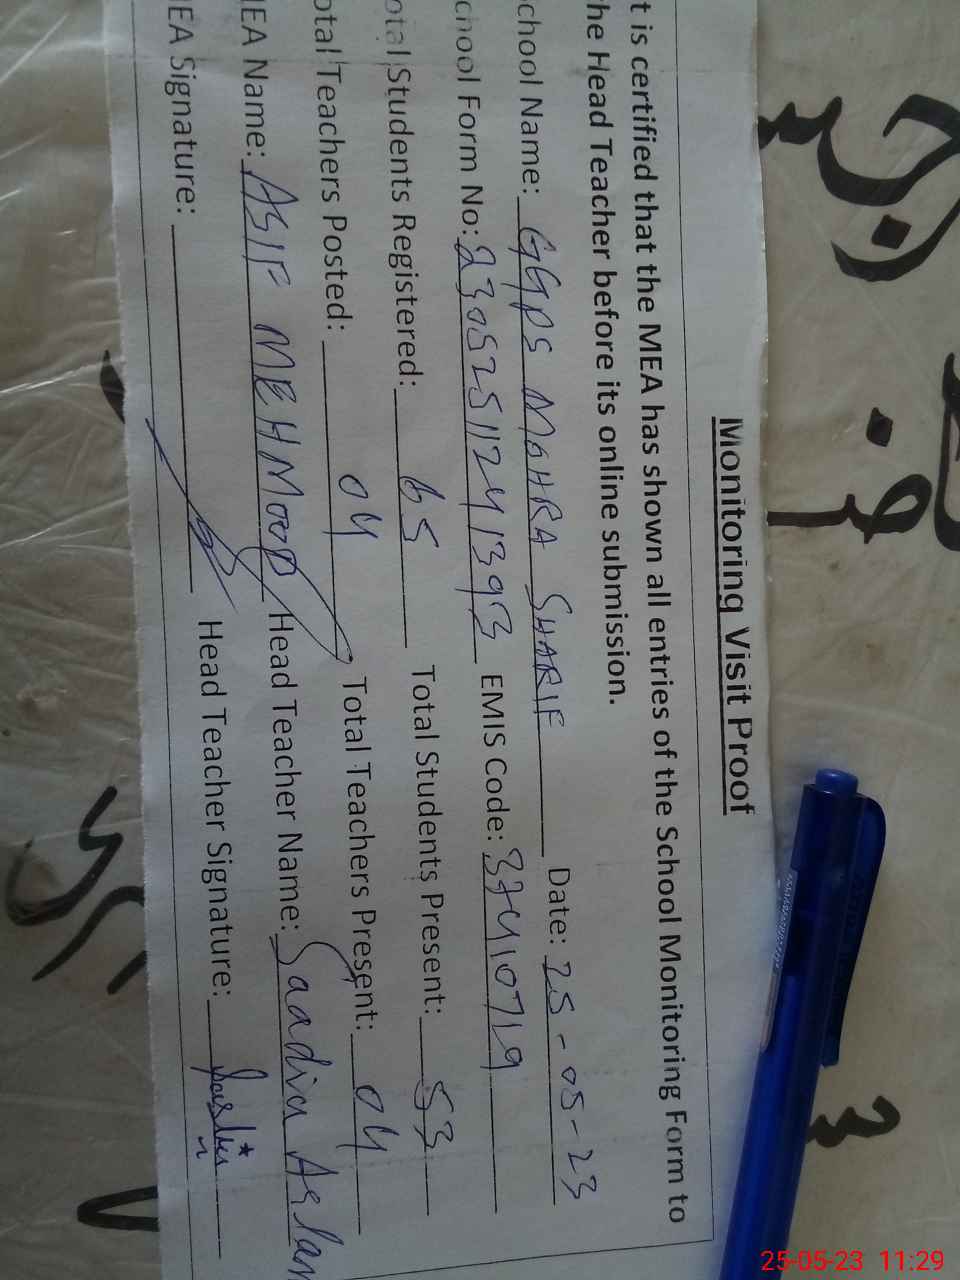 Monitoring Visit Proof
t is certified that the MEA has shown all entries of the School Monitoring Form to
he Head Teacher before its online submission.
chool Name: GGPS MOHRA SHARIF Date: 25-05-23
chool Form No: 23052511241393 EMIS Code: 37410719
otal Students Registered: 65 Total Students Present: 53
otal Teachers Posted: 04 Total Teachers Present: 04
IEA Name: ASIF MEHMOOD Head Teacher Name: Saadia Aslam
IEA Signature: Head Teacher Signature:
25-05-23 11:29